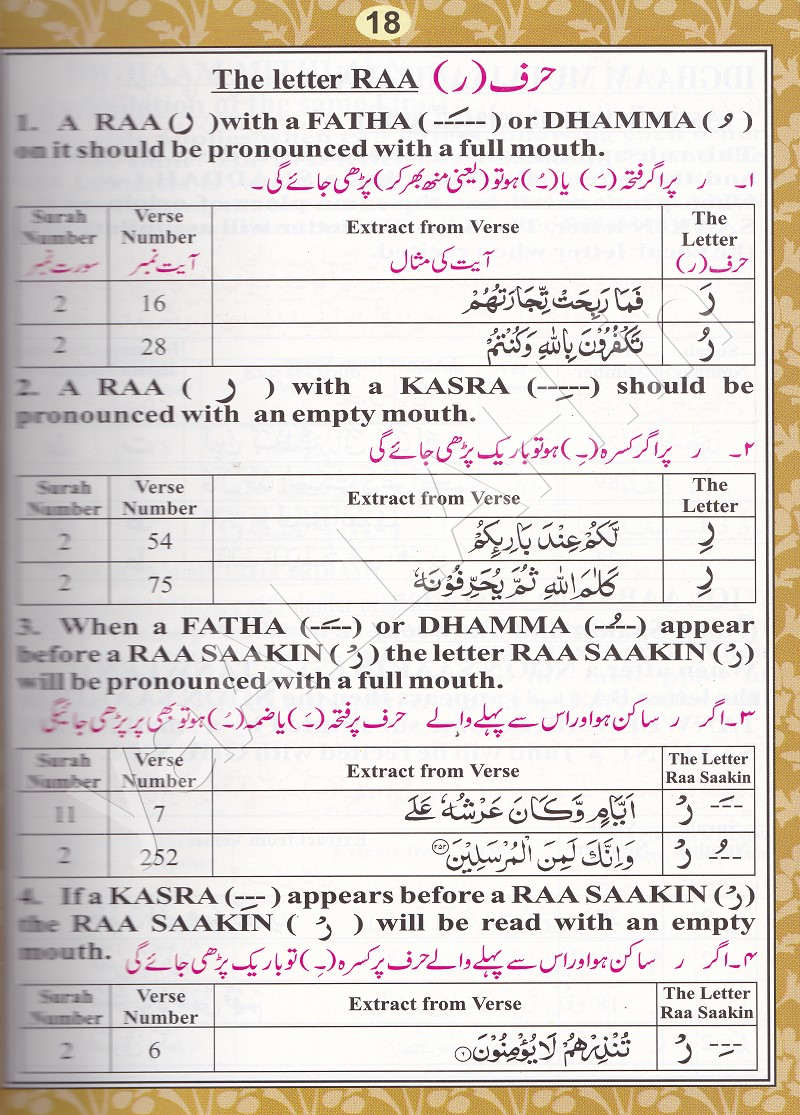 18
The letter RAA حرف (ر)
1. A RAA (ر) with a FATHA (---َ---) or DHAMMA (ُر)
on it should be pronounced with a full mouth.
۱۔ ر پر اگر فتحہ (ـَ) یا (ـُ) ہو تو (یعنی منھ بھر کر) پڑھی جائے گی۔
Surah Number Verse Number Extract from Verse The Letter
سورت نمبر آیت نمبر آیت کی مثال حرف (ر)
2 16 فَمَا رَبِحَتْ تِّجَارَتُهُمْ رَ
2 28 تَكْفُرُوْنَ بِاللّٰهِ وَكُنْتُمْ رُ
2. A RAA ( ر ) with a KASRA (---ِ---) should be
pronounced with an empty mouth.
۲۔ ر پر اگر کسرہ (ـِ) ہو تو باریک پڑھی جائے گی
Surah Number Verse Number Extract from Verse The Letter
2 54 لَّكُمْ عِنْدَ بَارِئِكُمْ رِ
2 75 كَلٰمَ اللّٰهِ ثُمَّ يُحَرِّفُوْنَهٗ رِ
3. When a FATHA (---َ---) or DHAMMA (---ُ---) appear
before a RAA SAAKIN (رْ) the letter RAA SAAKIN (رْ)
will be pronounced with a full mouth.
۳۔ اگر ر ساکن ہو اور اس سے پہلے والے حرف پر فتحہ (ـَ) یا ضمہ (ـُ) ہو تو بھی پر پڑھی جائیگی
Surah Number Verse Number Extract from Verse The Letter Raa Saakin
11 7 اَيَّامٍ وَّكَانَ عَرْشُهٗ عَلَے --َ-- رْ
2 252 وَاِنَّكَ لَمِنَ الْمُرْسَلِيْنَ ۝٢٥٢ --ُ-- رْ
4. If a KASRA (--ِ--) appears before a RAA SAAKIN (رْ)
the RAA SAAKIN ( رْ ) will be read with an empty
mouth. ۴۔ اگر ر ساکن ہو اور اس سے پہلے والے حرف پر کسرہ (ـِ) تو باریک پڑھی جائے گی
Surah Number Verse Number Extract from Verse The Letter Raa Saakin
2 6 تُنْذِرْهُمْ لَا يُؤْمِنُوْنَ ۝٦ --ِ-- رْ